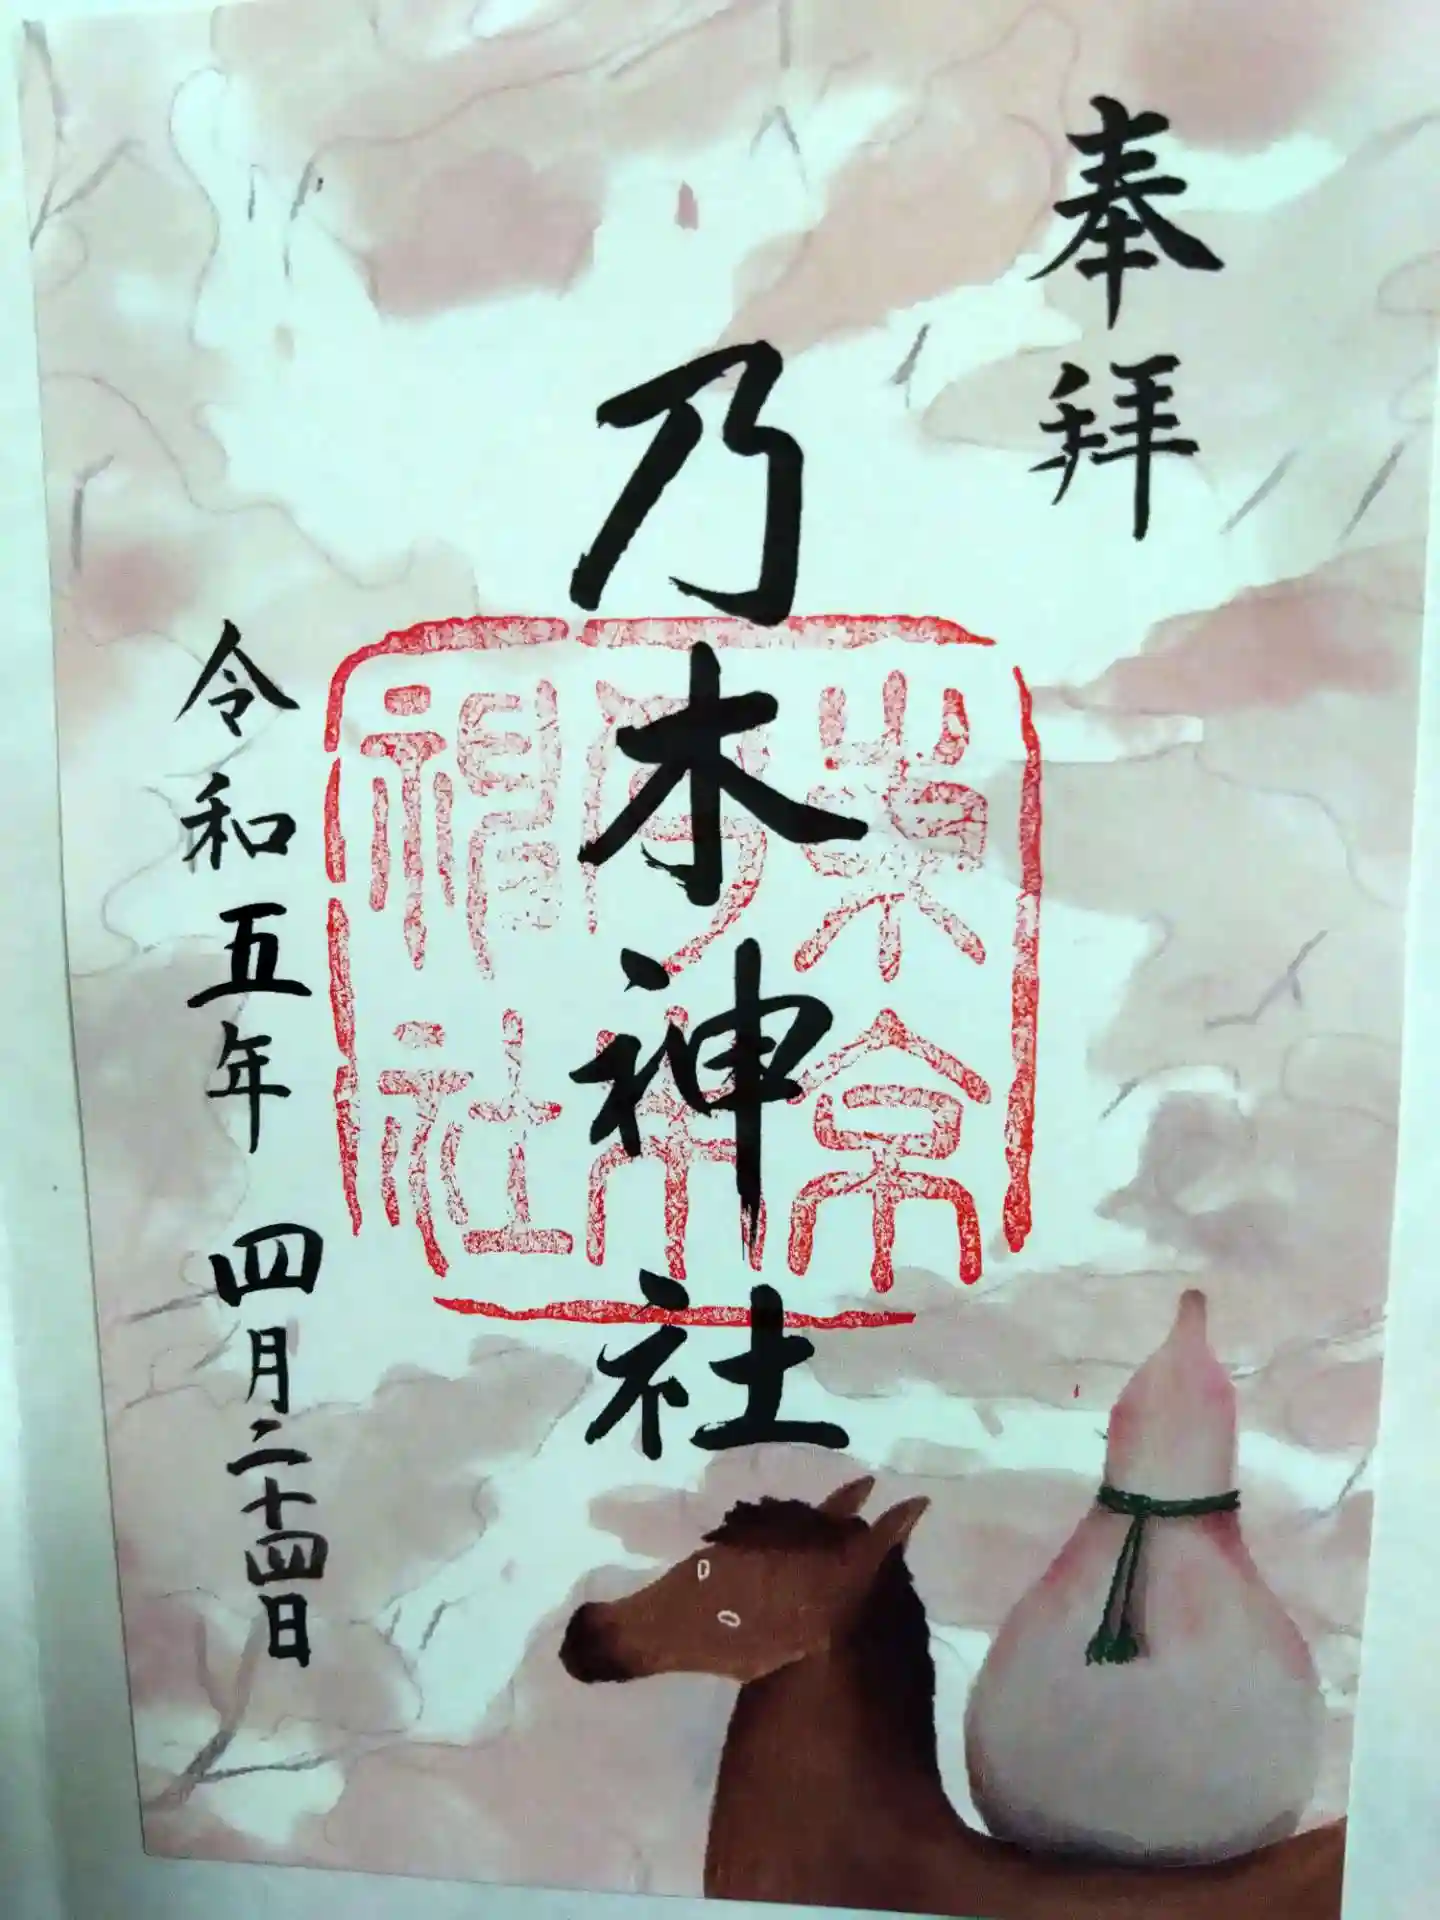 奉拝
乃木神社
東京
乃木
神社
令和五年 四月二十四日